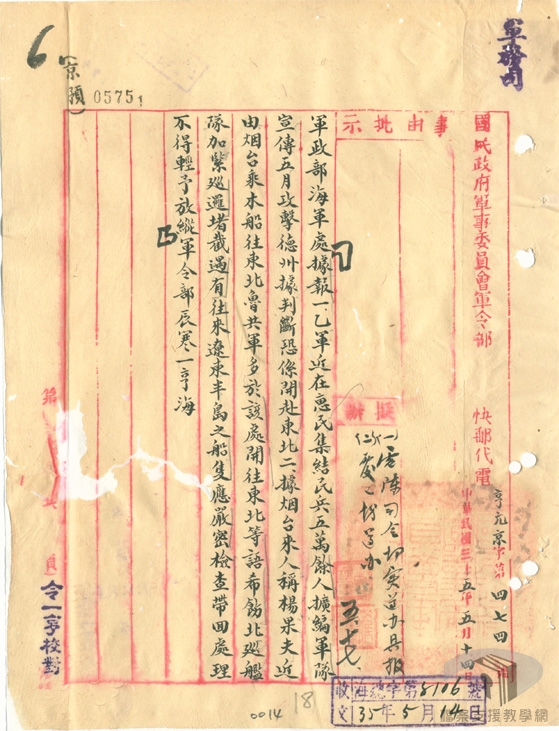 軍務司
國民政府軍事委員會軍令部 快郵代電
亨元京字第四七四
中華民國三十五年五月十四日
事由批示
擬辦
軍政部海軍處據報一、乙軍近在惠民集結民兵五萬餘人擴編軍隊
宣傳五月攻擊德州據判斷恐係開赴東北二、據烟台來人稱楊果夫近
由烟台乘木船往東北魯共軍多於該處開往東北等語希飭北巡艦
隊加緊巡邏堵截遇有往來遼東半島之船隻應嚴密檢查帶回處理
不得輕予放縱軍令部辰寒一亨海
6
京
05751
第 頁
令一亨校對
收文 海總字第8106號
35年5月14日
0014
18
檔案支援教學網